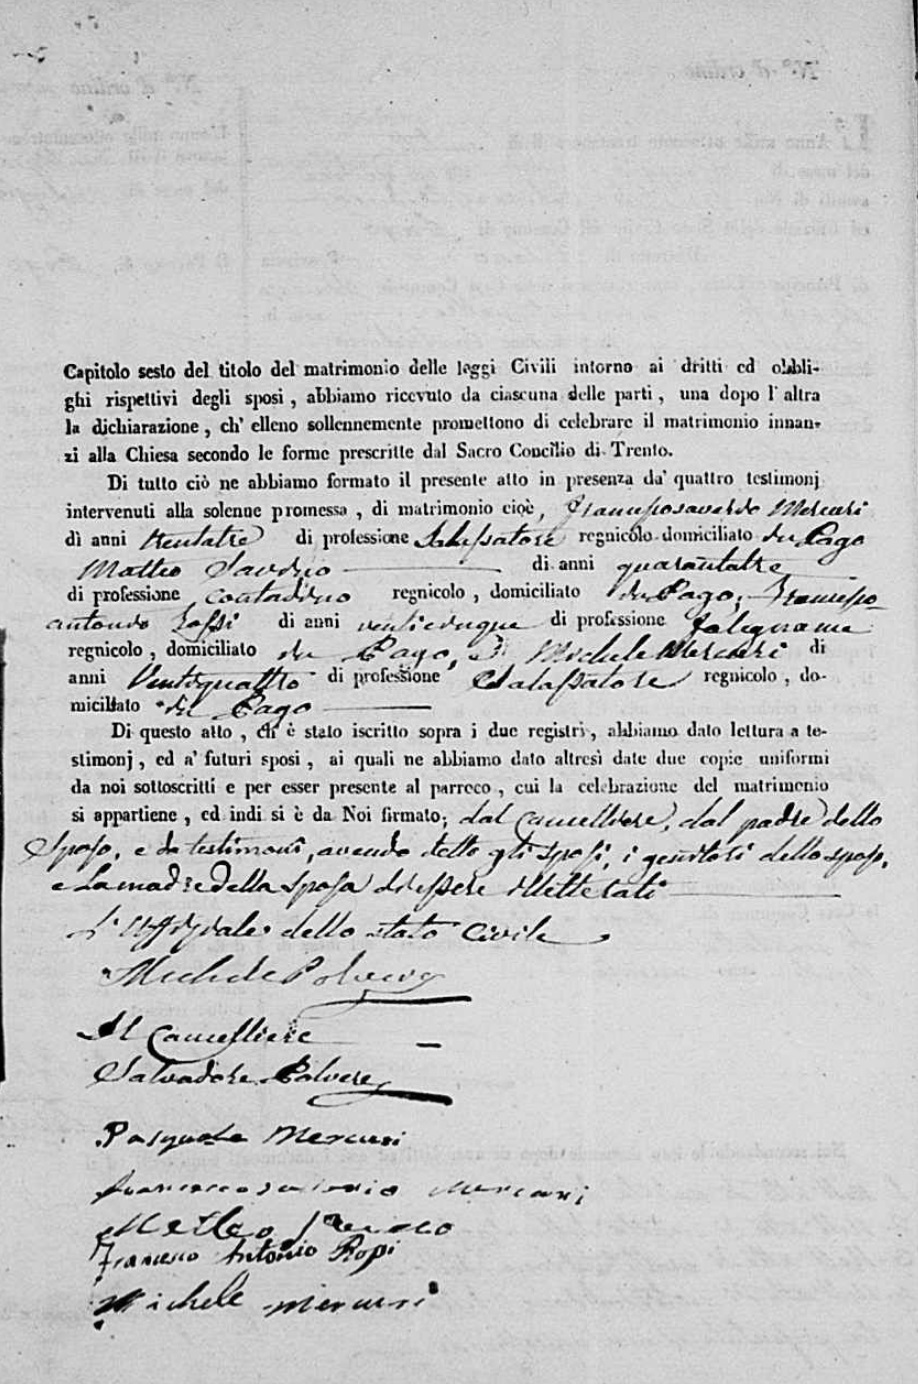 Capitolo sesto del titolo del matrimonio delle leggi Civili intorno ai dritti ed obbli-
ghi rispettivi degli sposi, abbiamo ricevuto da ciascuna delle parti, una dopo l'altra
la dichiarazione, ch' elleno sollennemente promettono di celebrare il matrimonio innan-
zi alla Chiesa secondo le forme prescritte dal Sacro Concilio di Trento.
Di tutto ciò ne abbiamo formato il presente atto in presenza da' quattro testimonj
intervenuti alla solenne promessa, di matrimonio cioè, Mercuri
di anni trentatre di professione Salassatore regnicolo domiciliato in Pago
Matteo di anni quarantatre
di professione contadino regnicolo, domiciliato in Pago, Francesco
antonio di anni venticinque di professione falegname
regnicolo, domiciliato in Pago, E Michele Mercuri di
anni Ventiquattro di professione Salassatore regnicolo, do-
miciliato in Pago
Di questo atto, ch' è stato iscritto sopra i due registri, abbiamo dato lettura a te-
stimonj, ed a' futuri sposi, ai quali ne abbiamo dato altresì date due copie uniformi
da noi sottoscritti e per esser presente al parroco, cui la celebrazione del matrimonio
si appartiene, ed indi si è da Noi firmato; dal Cancelliere, dal padre dello
Sposo, e da testimonj, avendo detto gli sposi, i genitori dello sposo,
e La madre della Sposa di essere illetterati
L'Uffiziale dello stato Civile
Michele Polvere
Il Cancelliere
Salvadore Polvere
Pasquale Mercuri
Mercuri
Matteo
Francesco Antonio
Michele Mercuri